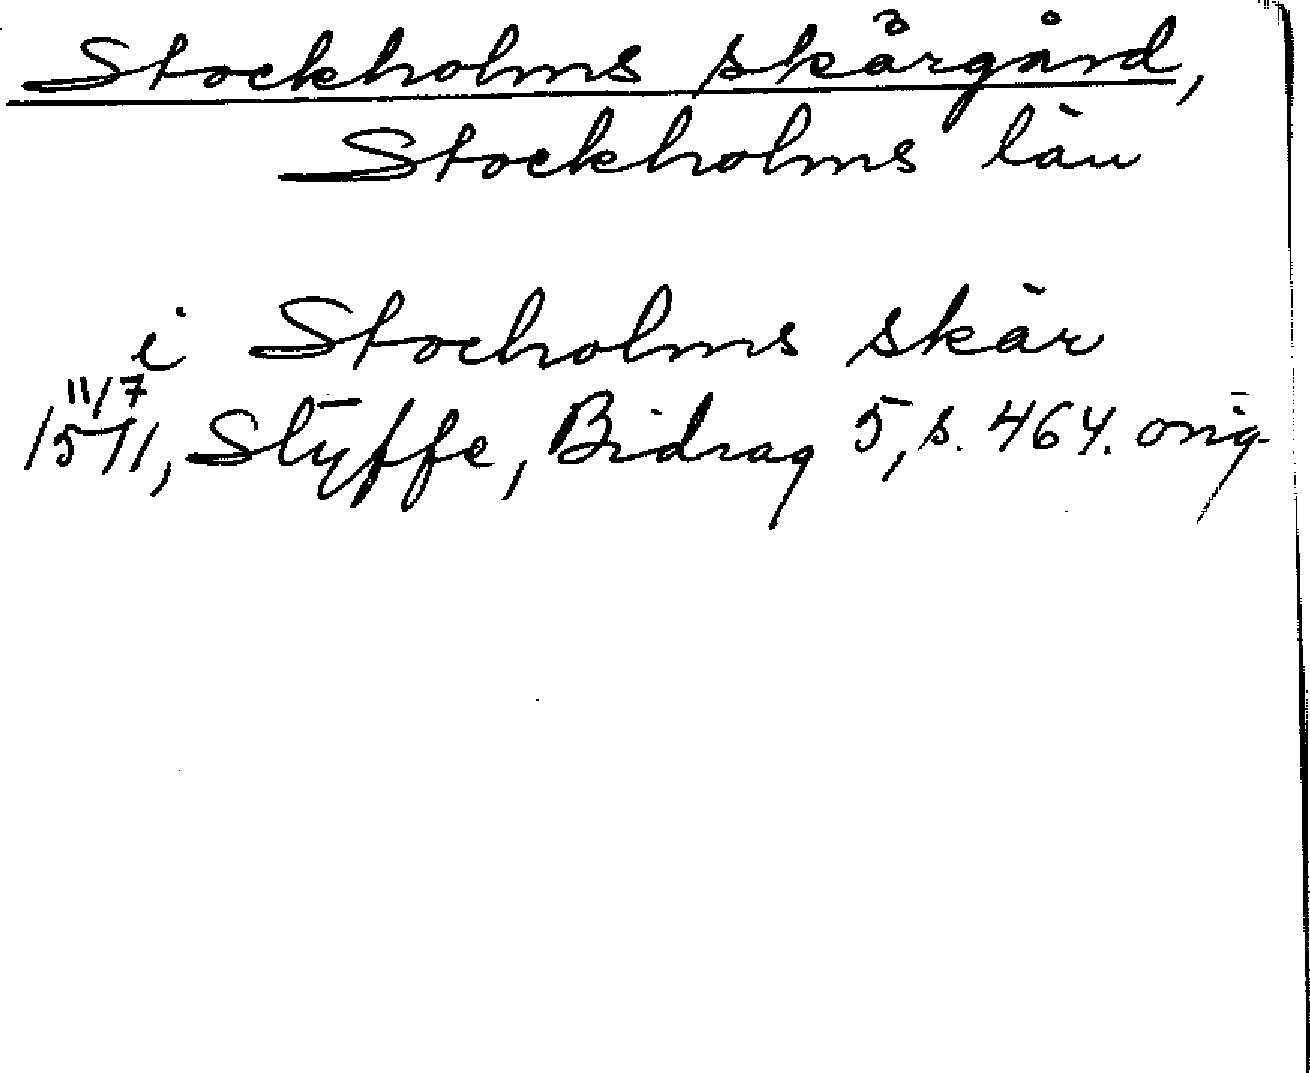 Stockholms skärgård,
Stockholms län
i Stocholms skär
11/7
1511, Styffe, Bidrag 5, s. 464. orig